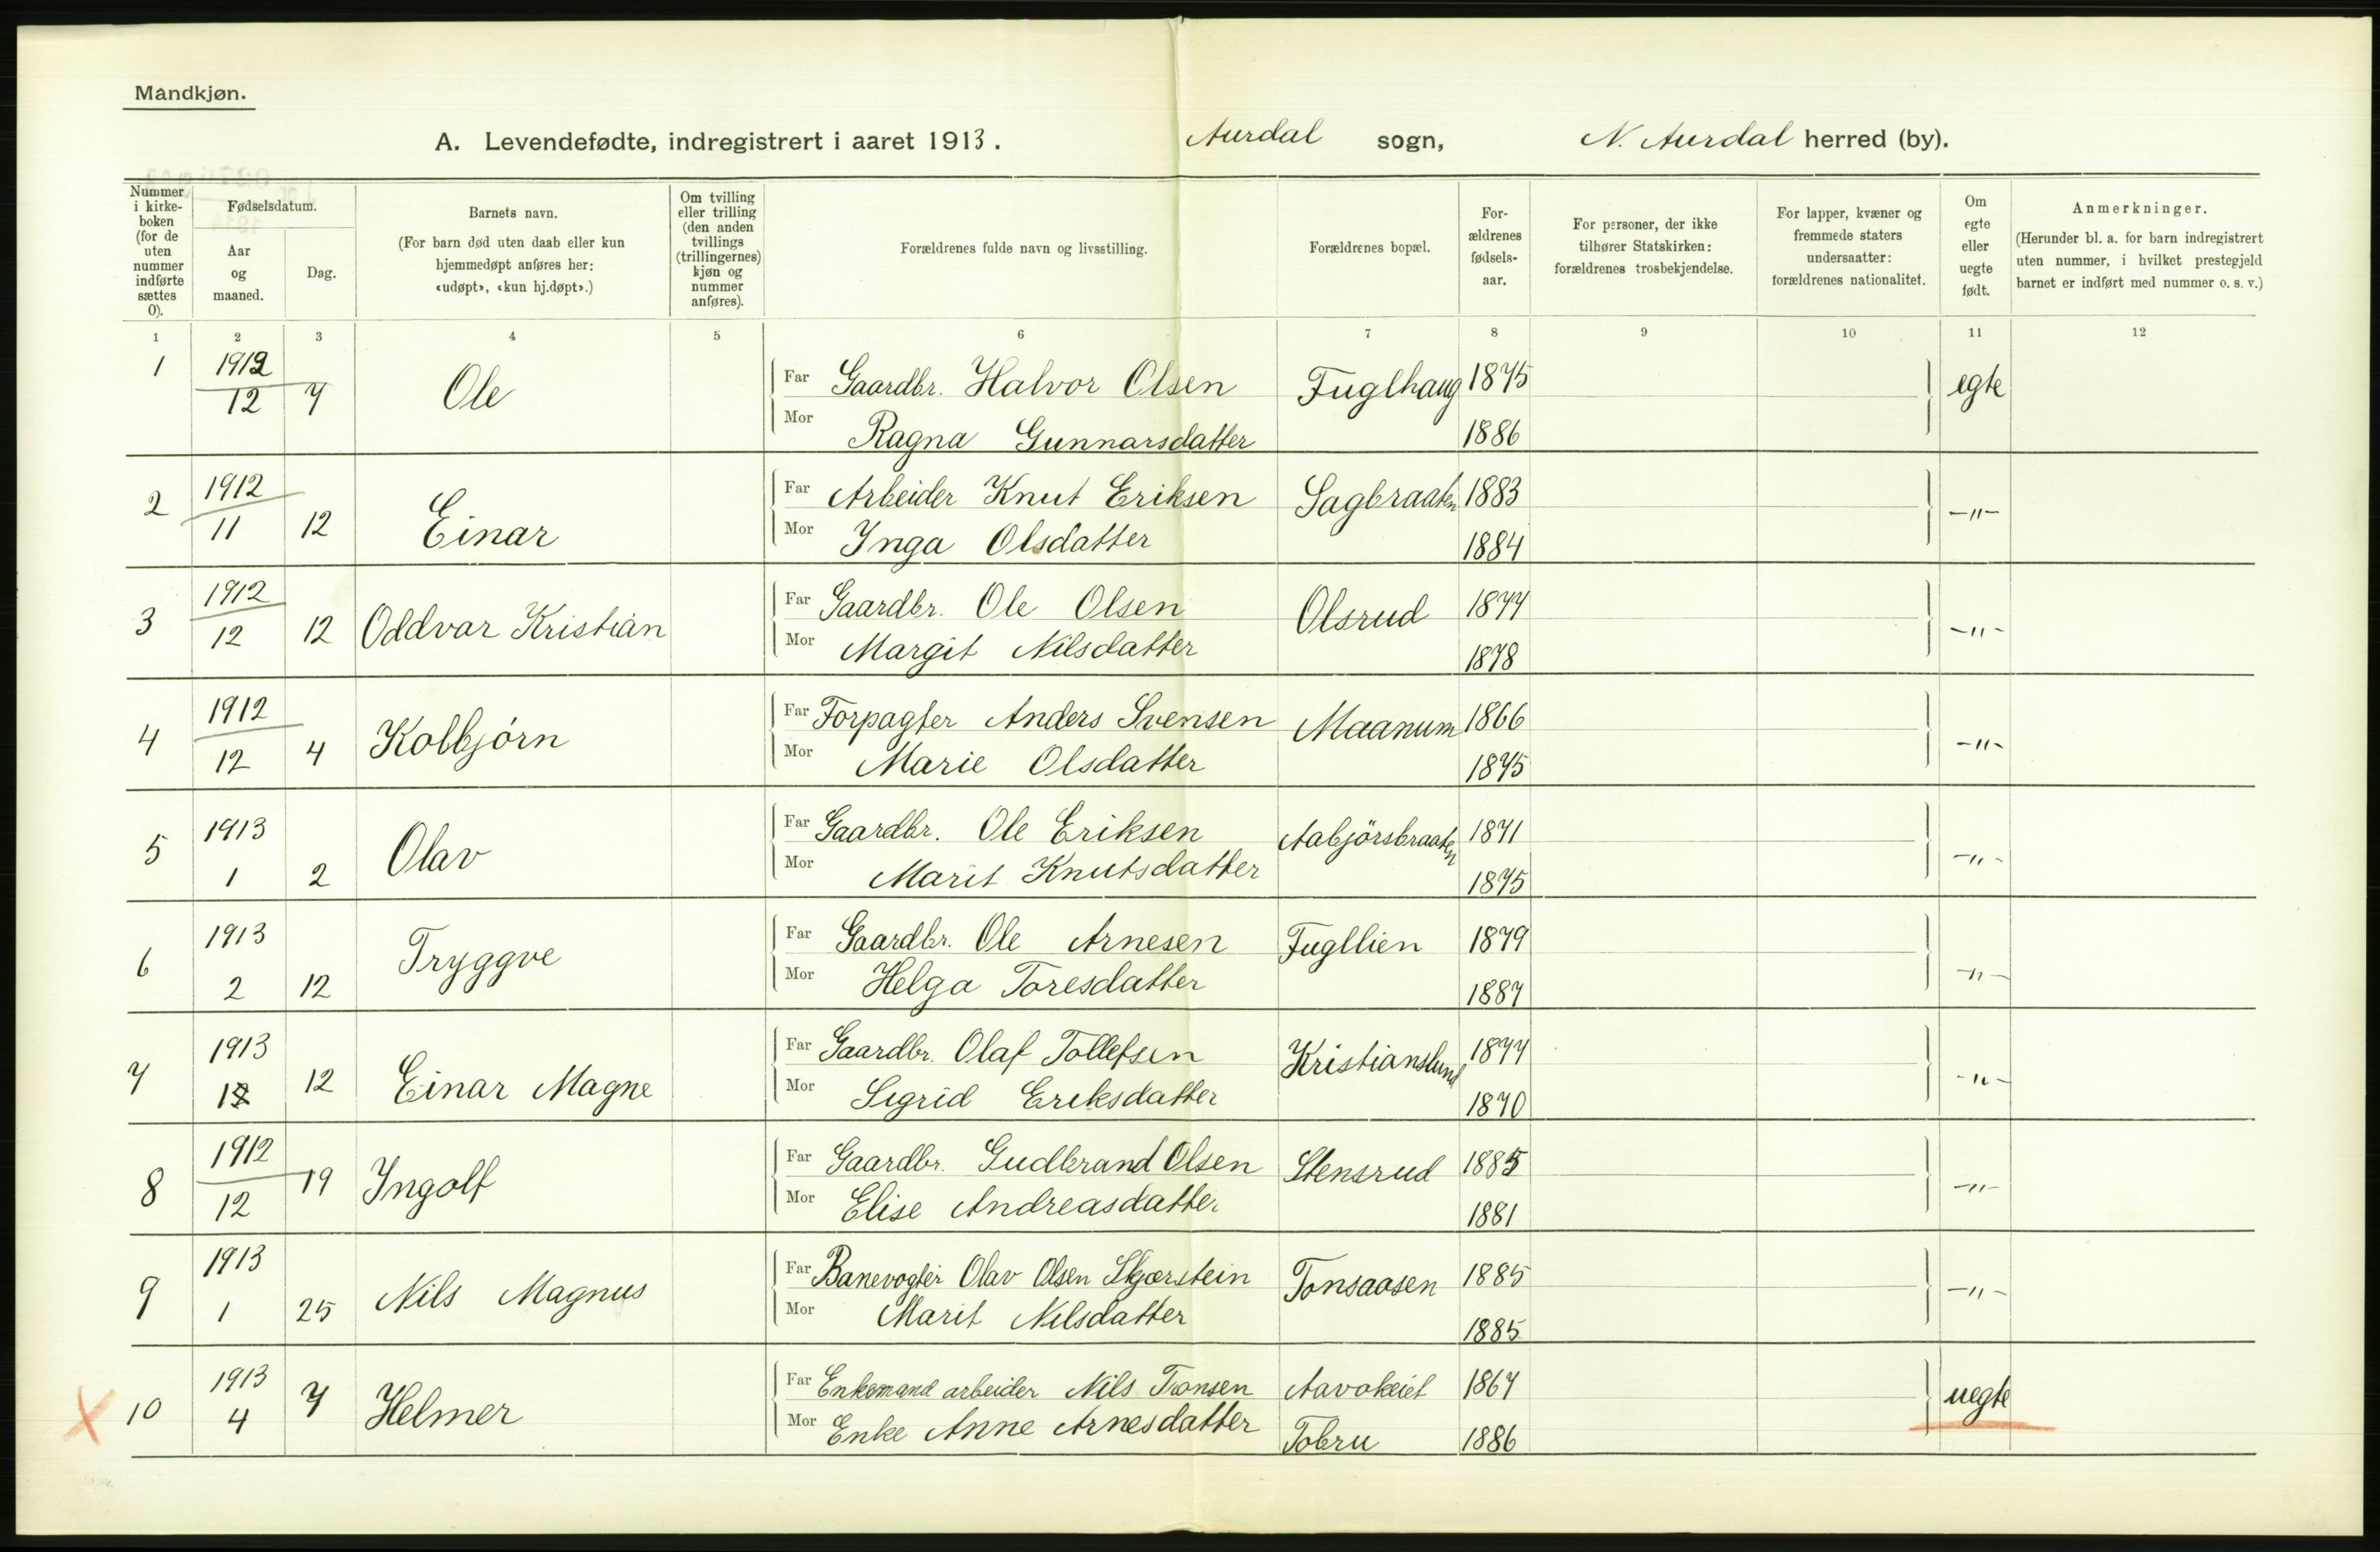 Mandkjøn.
A. Levendefødte, indregistrert i aaret 1913. Aurdal sogn, N. Aurdal herred (by).
Nummer i kirke-boken (for de uten nummer indførte sættes 0).
Fødselsdatum.
Aar og maaned.
Dag.
Barnets navn.
(For barn død uten daab eller kun hjemmedøpt anføres her: «udøpt», «kun hj.døpt».)
Om tvilling eller trilling (den anden tvillings (trillingernes) kjøn og nummer anføres).
Forældrenes fulde navn og livsstilling.
Forældrenes bopæl.
For-ældrenes fødsels-aar.
For personer, der ikke tilhører Statskirken: forældrenes trosbekjendelse.
For lapper, kvæner og fremmede staters undersaatter: forældrenes nationalitet.
Om egte eller uegte født.
Anmerkninger.
(Herunder bl. a. for barn indregistrert uten nummer, i hvilket prestegjeld barnet er indført med nummer o. s. v.)
1 2 3 4 5 6 7 8 9 10 11 12
1 1912 12 7 Ole Far Gaardbr. Halvor Olsen Fuglhaug 1875 egte
Mor Ragna Gunnarsdatter 1886
2 1912 11 12 Einar Far Arbeider Knut Eriksen Sagbraaten 1883 -"-
Mor Inga Olsdatter 1884
3 1912 12 12 Oddvar Kristian Far Gaardbr. Ole Olsen Olsrud 1877 -"-
Mor Margit Nilsdatter 1878
4 1912 12 4 Kolbjørn Far Forpagter Anders Svensen Maanum 1866 -"-
Mor Marie Olsdatter 1875
5 1913 1 2 Olav Far Gaardbr. Ole Eriksen Aabjörsbraaten 1871 -"-
Mor Marit Knutsdatter 1875
6 1913 2 12 Tryggve Far Gaardbr. Ole Arnesen Fugllien 1879 -"-
Mor Helga Toresdatter 1887
7 1913 1 12 Einar Magne Far Gaardbr. Olaf Tollefsen Kristianslund 1877 -"-
Mor Sigrid Eriksdatter 1870
8 1912 12 19 Ingolf Far Gaardbr. Gudbrand Olsen Stensrud 1885 -"-
Mor Elise Andreasdatter 1881
9 1913 1 25 Nils Magnus Far Banevogter Olav Olsen Skjærstein Tonsaasen 1885 -"-
Mor Marit Nilsdatter 1885
10 1913 4 7 Helmer Far Enkemand arbeider Nils Transen 1867 uegte
Mor Enke Anne Arnesdatter Tobru 1886